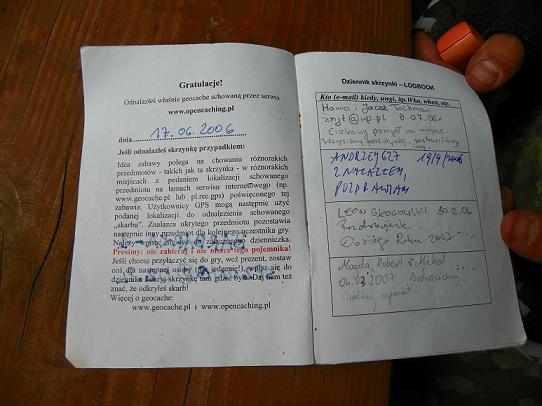 Gratulacje!
Odnalazłeś właśnie geocache schowaną przez serwis
www.opencaching.pl
dnia 17.06.2006
Jeśli odnalazłeś skrzynkę przypadkiem:
Idea zabawy polega na chowaniu różnorakich
przedmiotów - takich jak ta skrzynka - w różnorakich
miejscach z podaniem lokalizacji schowanego
przedmiotu na łamach serwisu internetowego (np.
www.geocache.pl lub pl.rec.gps) poświęconego tej
zabawie. Użytkownicy GPS mogą następnie użyć
podanej lokalizacji do odnalezienia schowanego
„skarbu". Znalazca ukrytego przedmiotu pozostawia
następnie inny przedmiot dla kolejnego uczestnika gry.
Należy wpisać się do załączonego dzienniczka.
Prosimy: nie zabieraj i nie niszcz tego pojemnika!
Jeśli chcesz przyłączyć się do gry, weź prezent, zostaw
coś dla następnej osoby (nie jedzenie!), wpisz się do
dziennika i skrzynkę tam gdzie była. Daj nam też
znać, że odkryłeś skarb!
Więcej o geocache:
www.geocache.pl i www.opencaching.pl
Dziennik skrzynki – LOGBOOK
Kto (e-mail) kiedy, uwgi, itp.Who, when, etc.
Hania i Jacek Tochman
znjt@wp.pl 8.07.06r
Ciekawy pomysł na miejsce.
ANDRZEJ G27 19/9/2006
ZNALAZŁEM,
POZDRAWIAM
LEON 30.12.06
Dosiego Roku 2007
Magda, Robert i Michał
04.03.2007